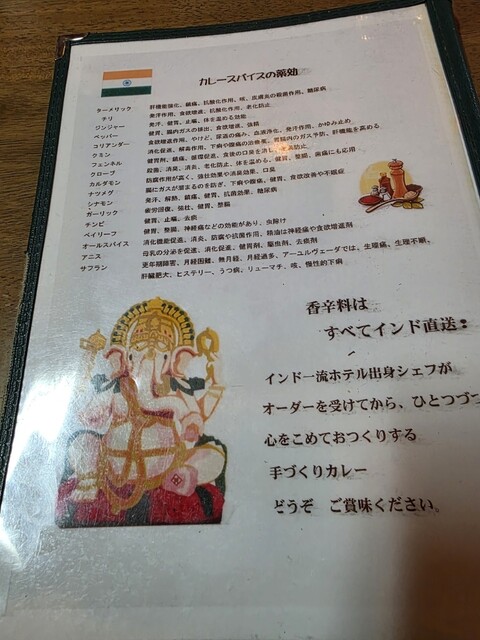 カレースパイスの薬効
ターメリック 肝機能強化、鎮痛、抗酸化作用、咳、皮膚炎の殺菌作用、糖尿病
チリ 発汗作用、食欲増進、抗酸化作用、老化防止
ジンジャー 発汗、健胃、止嘔、体を温める効能
ペッパー 健胃、腸内ガスの排出、食欲増進、強精
コリアンダー 食欲増進作用、やけど、尿道の痛み、血液浄化、発汗作用、かゆみ止め
クミン 消化促進、解毒作用、下痢や腹痛の治療薬、胃腸内のガス予防、肝機能を高める
フェンネル 健胃剤、鎮痛、循環促進、食後の口臭を消し、虫歯防止
クローブ 殺菌、消臭、消炎、老化防止、体を温める、健胃、整腸、歯痛にも応用
カルダモン 防腐作用が高く、強壮効果や消臭効果、口臭
ナツメグ 腸にガスが溜まるのを防ぎ、下痢や腹痛、健胃、食欲改善や不眠症
シナモン 発汗、解熱、鎮痛、健胃、抗菌効果、糖尿病
ガーリック 疲労回復、強壮、健胃、整腸
チンピ 健胃、止嘔、去痰
ベイリーフ 健胃、整腸、神経痛などの効果があり、虫除け
オールスパイス 消化機能促進、消炎、防腐や抗菌作用、精油は神経痛や食欲増進剤
アニス 母乳の分泌を促進、消化促進、健胃剤、駆虫剤、去痰剤
サフラン 更年期障害、月経困難、無月経、月経過多、アーユルヴェーダでは、生理痛、生理不順、
肝臓肥大、ヒステリー、うつ病、リューマチ、咳、慢性的下痢
香辛料は
すべてインド直送!
インド一流ホテル出身シェフが
オーダーを受けてから、ひとつづつ
心をこめておつくりする
手づくりカレー
どうぞ ご賞味ください。